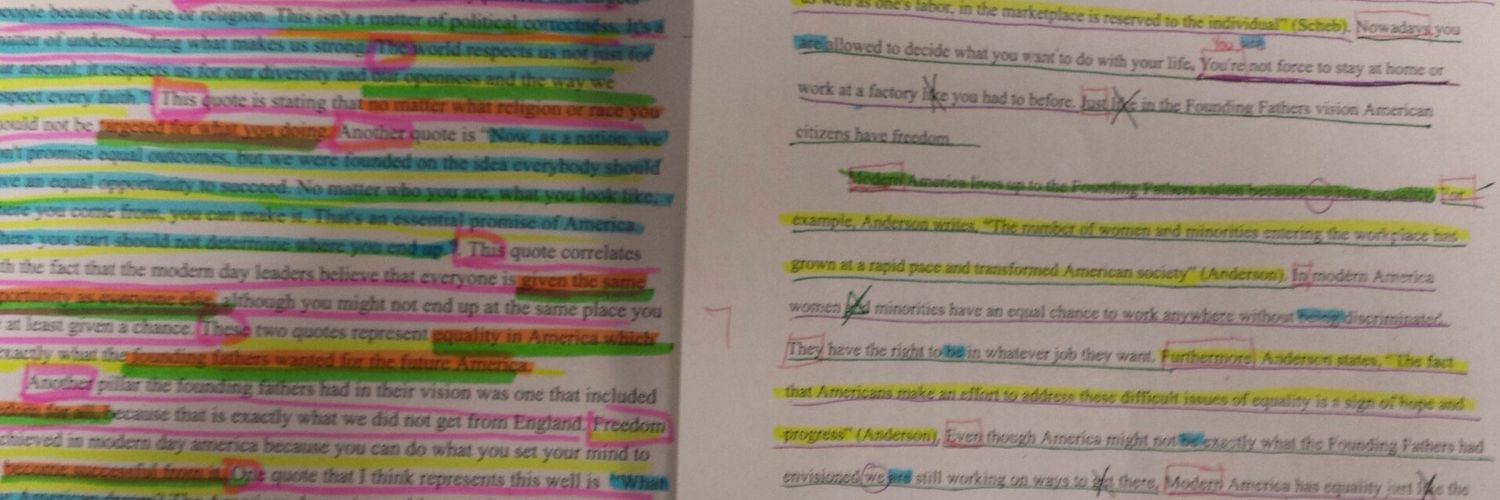 people because of race or religion. This isn't a matter of political correctness. It's a
matter of understanding what makes us strong. The world respects us not just for
our arsenal; it respects us for our diversity and our openness and the way we
respect every faith". This quote is stating that no matter what religion or race you
should not be targeted for what you doing. Another quote is "Now, as a nation, we
don't promise equal outcomes, but we were founded on the idea everybody should
have an equal opportunity to succeed. No matter who you are, what you look like,
where you come from, you can make it. That's an essential promise of America.
Where you start should not determine where you end up". This quote correlates
with the fact that the modern day leaders believe that everyone is given the same
opportunity as everyone else, although you might not end up at the same place you
at least given a chance. These two quotes represent equality in America which
exactly what the founding fathers wanted for the future America.
Another pillar the founding fathers had in their vision was one that included
freedom for all because that is exactly what we did not get from England. Freedom
achieved in modern day america because you can do what you set your mind to
become successful from it. One quote that I think represents this well is "What
as well as one's labor, in the marketplace is reserved to the individual" (Scheb). Nowadays you
are allowed to decide what you want to do with your life. You're not force to stay at home or
You are
work at a factory like you had to before. Just like in the Founding Fathers vision American
citizens have freedom.
Modern America lives up to the Founding Fathers vision because we have equality. For
example, Anderson writes, "The number of women and minorities entering the workplace has
grown at a rapid pace and transformed American society" (Anderson). In modern America
women and minorities have an equal chance to work anywhere without being discriminated.
They have the right to be in whatever job they want. Furthermore, Anderson states, "The fact
that Americans make an effort to address these difficult issues of equality is a sign of hope and
progress" (Anderson). Even though America might not be exactly what the Founding Fathers had
envisioned we are still working on ways to get there. Modern America has equality just like the